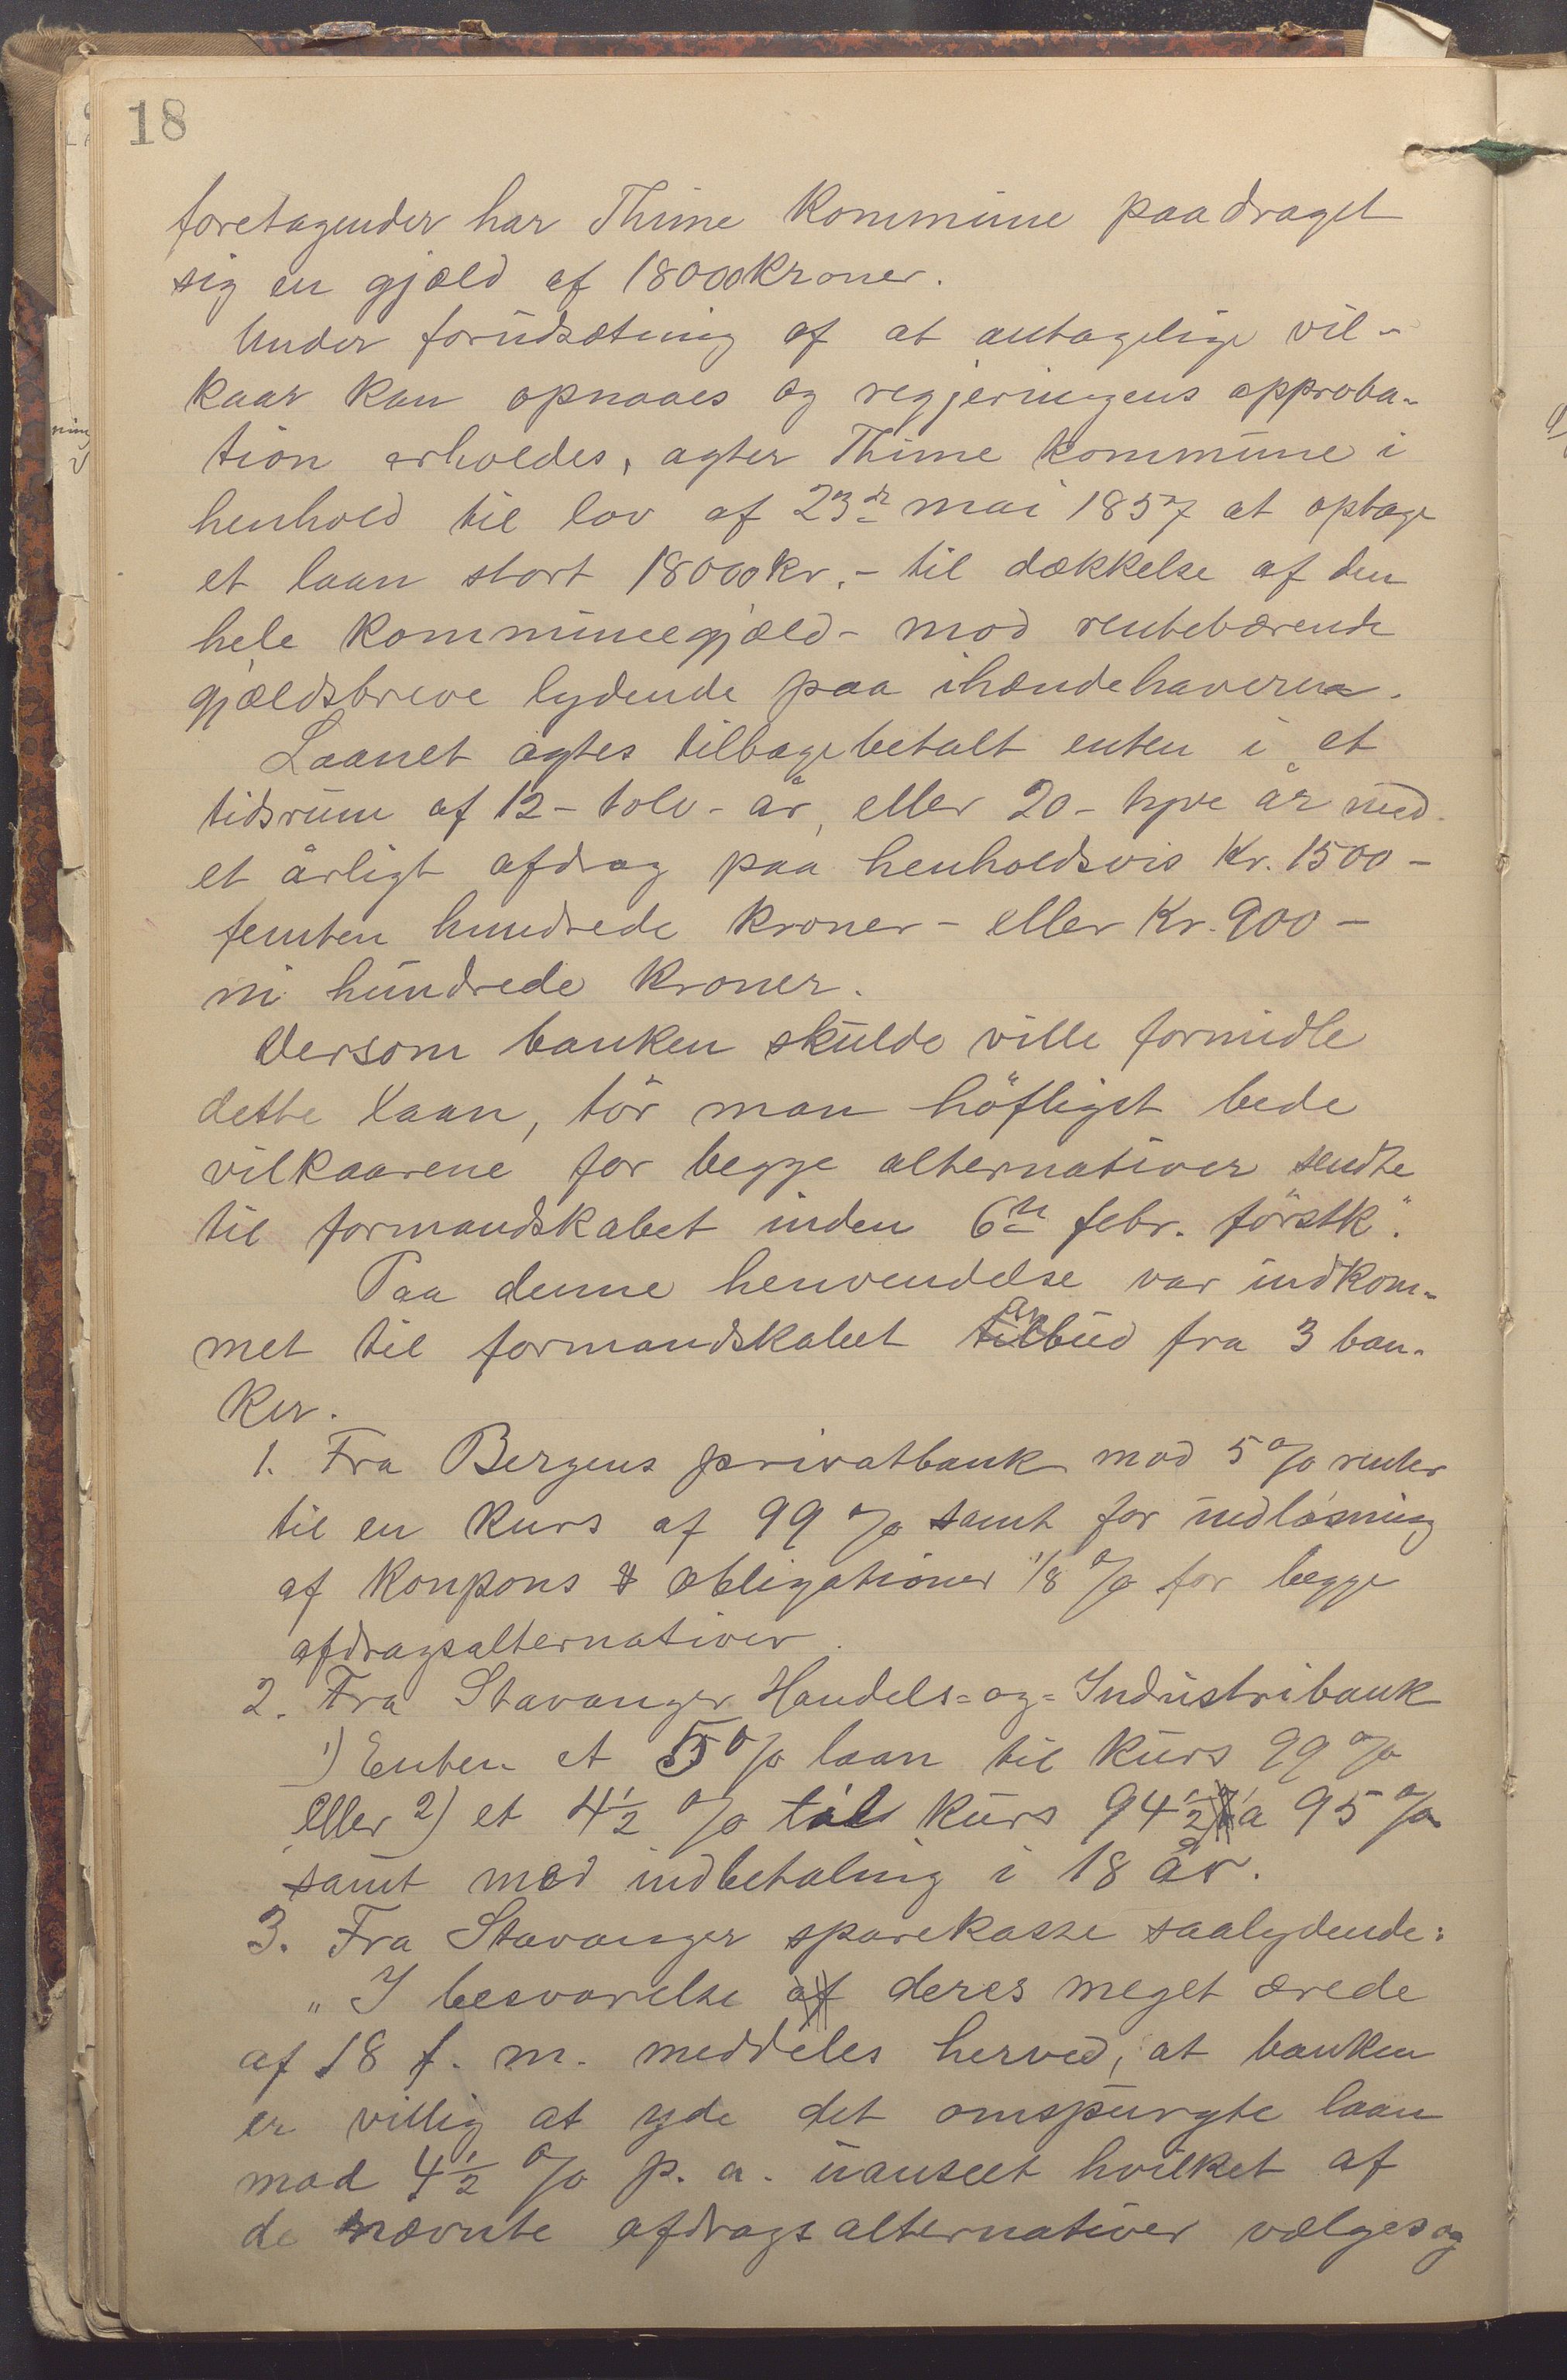 18
foretagender har Thime kommune paadraget
sig en gjæld af 18000 kroner.
Under forudsætning af at antagelige vil-
kaar kan opnaaes og regjeringens approba-
tion erholdes, agter Thime kommune i
henhold til lov af 23de mai 1857 at optage
et laan stort 18000 kr.- til dækkelse af den
hele kommunegjæld - mod rentebærende
gjældsbreve lydende paa ihændehaveren.
Laanet agtes tilbagebetalt enten i et
tidsrum af 12 - tolv - år, eller 20 - tyve år med
et årligt afdrag paa henholdsvis Kr. 1500 -
femten hundrede kroner - eller Kr. 900 -
ni hundrede kroner.
Dersom banken skulde ville formidle
dette laan, tör man höfligst bede
vilkaarene for begge alternativer sendte
til formandskabet inden 6te febr. förstk."
Paa denne henvendelse var indkom-
met til formandskabet anbud fra 3 ban-
ker.
1. Fra Bergens privatbank mod 5 % renter
til en kurs af 99 % samt for indløsning
af koupons & obligationer 1/8 % for begge
afdragsalternativer.
2. Fra Stavanger Handels= og= Industribank
1) Enten et 5 % laan til kurs 99 %
eller 2) et 4 1/2 % til kurs 94 1/2 a 95 %
samt med indbetaling i 18 år.
3. Fra Stavanger sparekasse saalydende:
"I besvarelse af deres meget ærede
af 18 f. m. meddeles herved, at banken
er villig at yde det omspurgte laan
mod 4 1/2 % p. a. uanseet hvilket af
de nævnte afdragsalternativer vælges og